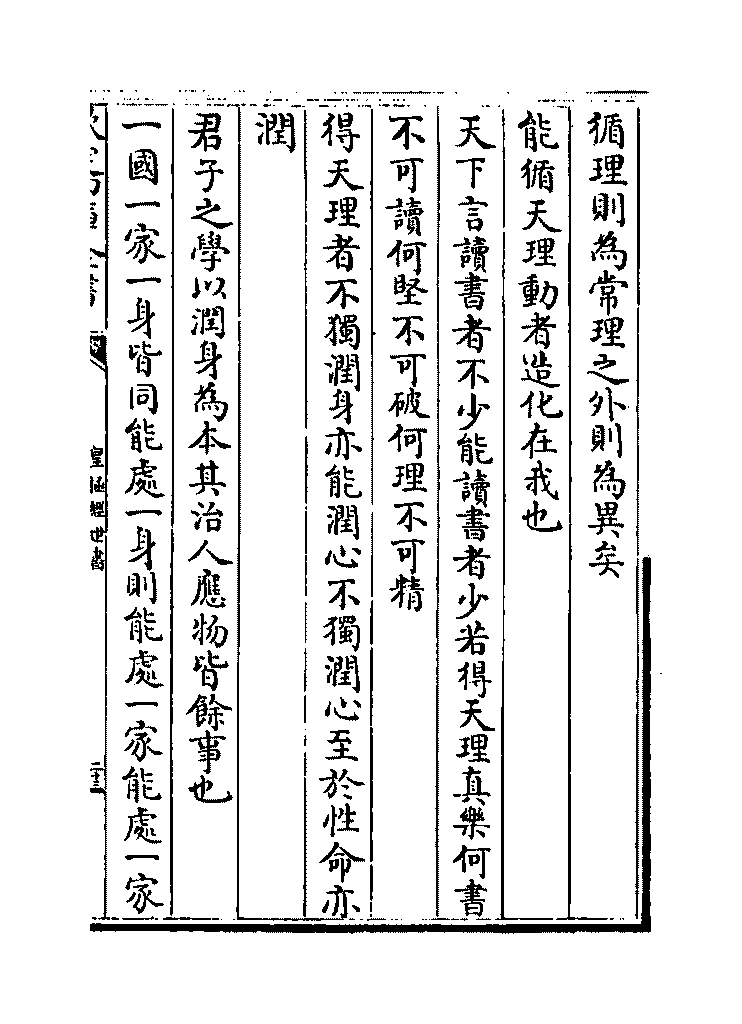 循理則為常理之外則為異矣
能循天理動者造化在我也
天下言讀書者不少能讀書者少若得天理真樂何書
不可讀何堅不可破何理不可精
得天理者不獨潤身亦能潤心不獨潤心至於性命亦
潤
君子之學以潤身為本其治人應物皆餘事也
一國一家一身皆同能處一身則能處一家能處一家
皇極經世書